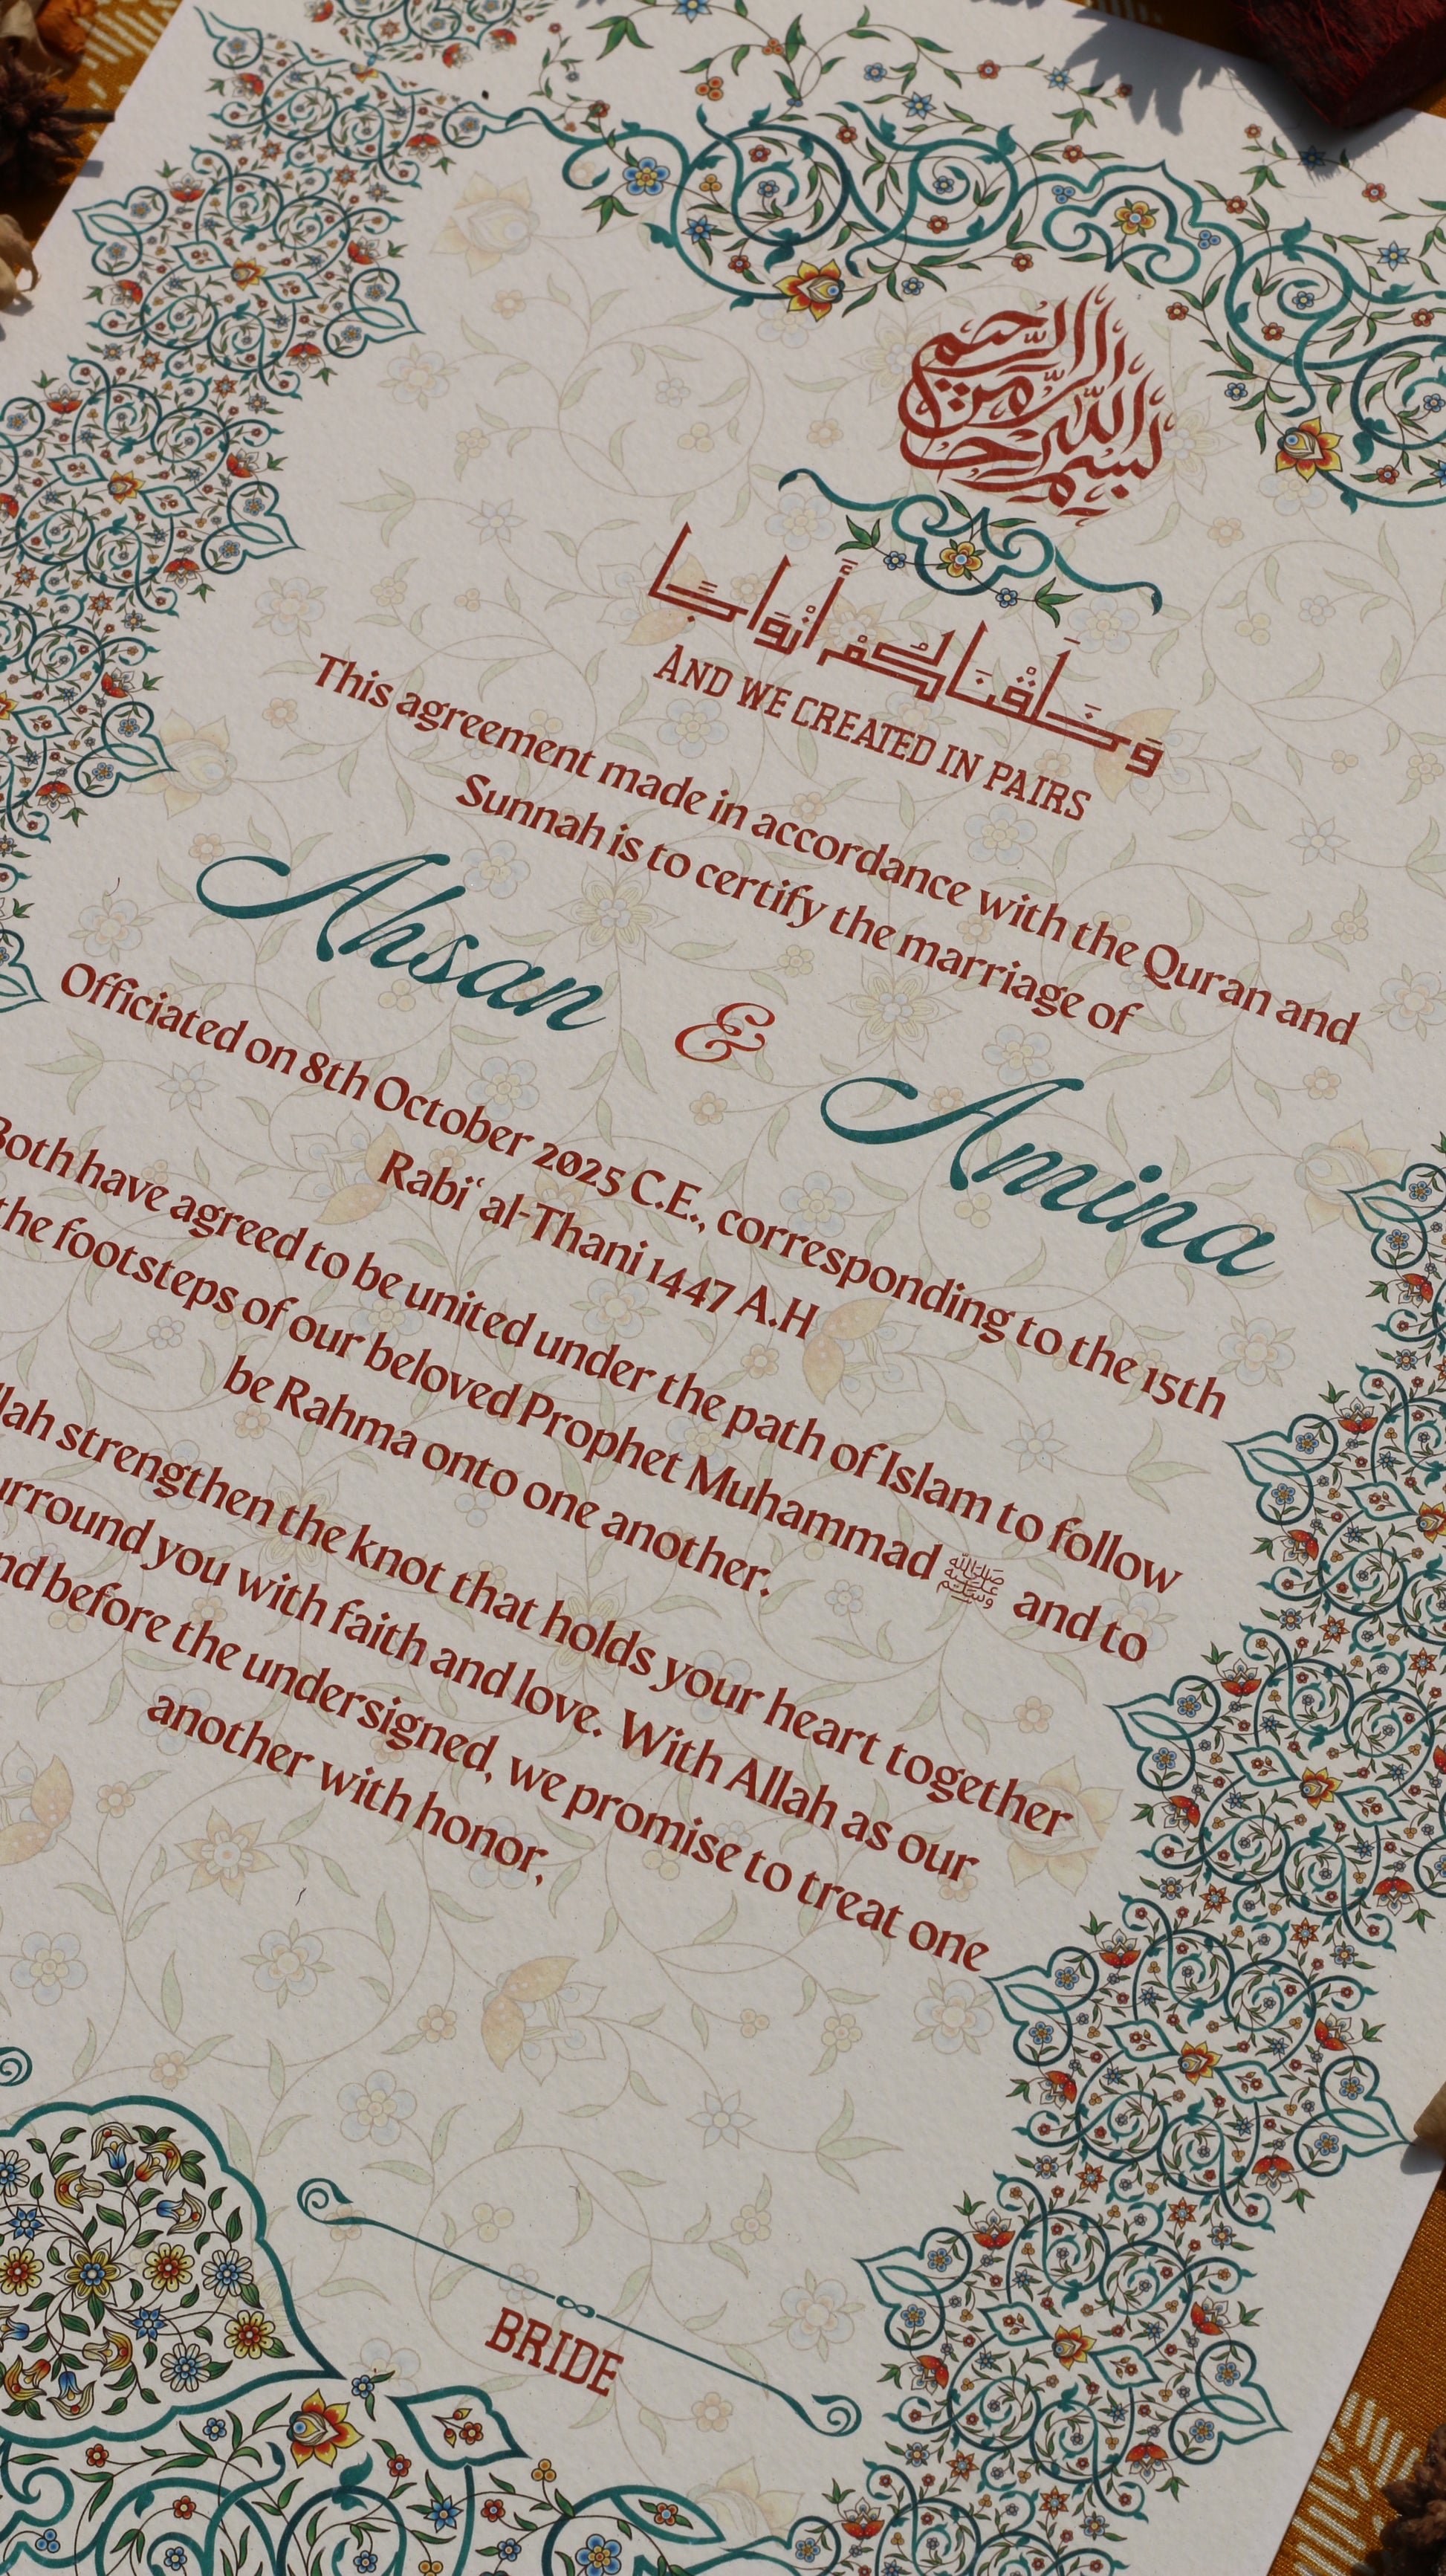 بسم الله الرحمن الرحيم
وَخَلَقْنَاكُمْ أَزْوَاجًا
AND WE CREATED IN PAIRS
This agreement made in accordance with the Quran and
Sunnah is to certify the marriage of
Ahsan & Amina
Officiated on 8th October 2025 C.E., corresponding to the 15th
Rabi‘ al-Thani 1447 A.H
Both have agreed to be united under the path of Islam to follow
the footsteps of our beloved Prophet Muhammad ﷺ and to
be Rahma onto one another.
strengthen the knot that holds your heart together
you with faith and love. With Allah as our
before the undersigned, we promise to treat one
another with honor.
BRIDE